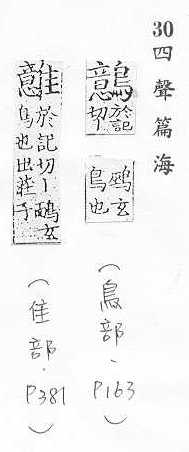 30 四聲篇海
鷾 於記切丨
鴯玄鳥也
(鳥部.P163)
於記切丨鴯玄
鳥也出莊子
(隹部.P381)